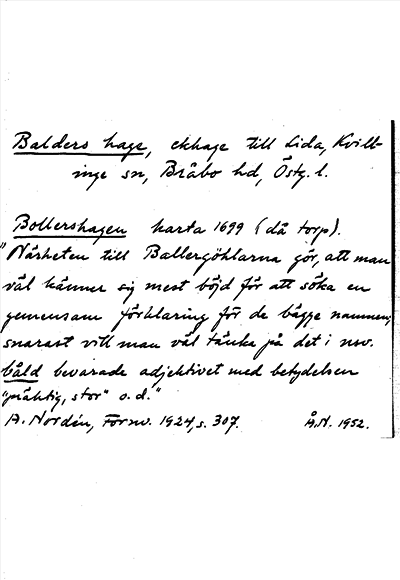 Balders hage, ekhage till Lida, Kvill-
inge sn, Bråbo hd, Östg. l.
Bollershagen karta 1699 (då torp).
"Närheten till Ballergöhlarna gör, att man
väl känner sig mest böjd för att söka en
gemensam förklaring för de bägge namnen;
snarast vill man väl tänka på det i nsv.
båld bevarade adjektivet med betydelsen
"präktig, stor" o.d."
A. Nordén, Fornv. 1924, s. 307. Å.N. 1952.